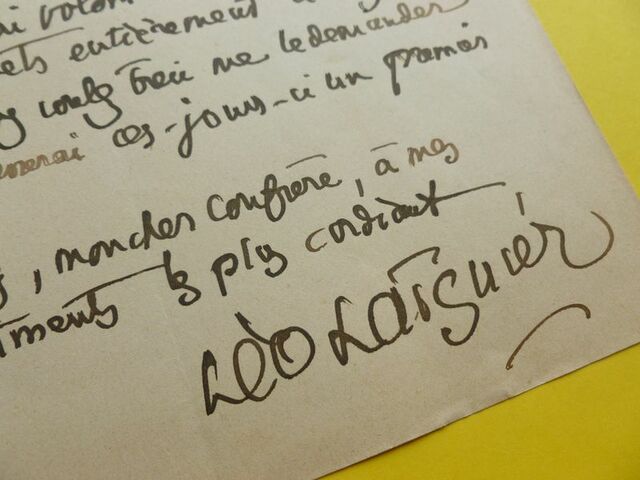 volon
ets entièrement à
voulez bien me le demander
nerai ces-jours-ci un premier
, mon cher confrère, à mes
timents les plus cordiaux
Léo Larguier